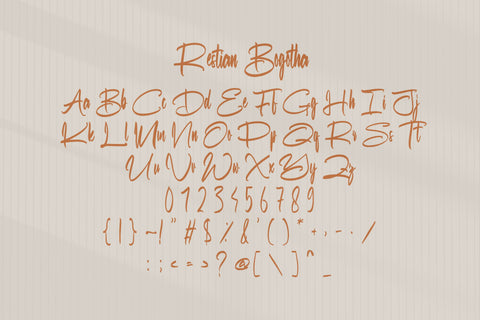 Restian Begotha
Aa Bb Cc Dd Ee Ff Gg Hh Ii Jj
Kk Ll Mm Nn Oo Pp Qq Rr Ss Tt
Uu Vv Ww Xx Yy Zz
0 1 2 3 4 5 6 7 8 9
{ | } ~ ! " # $ % & ' ( ) * + , - . /
: ; < = > ? @ [ \ ] ^ _